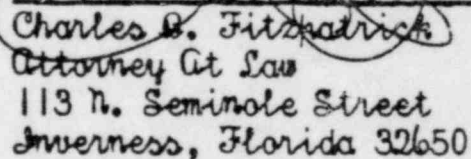 Charles B. Fitzpatrick
Attorney At Law
113 N. Seminole Street
Inverness, Florida 32650